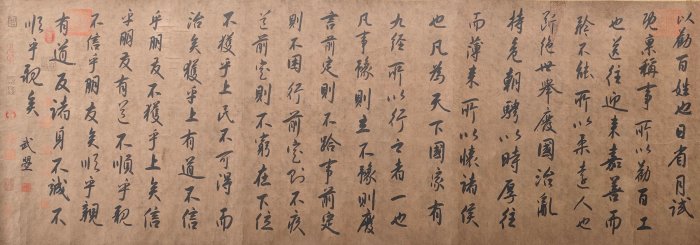 以勸百姓也日省月試
既稟稱事所以勸百工
也送往迎來嘉善而
矜不能所以柔遠人也
繼絕世舉廢國治亂
持危朝聘以時厚往
而薄來所以懷諸侯
也凡為天下國家有
九經所以行之者一也
凡事豫則立不豫則廢
言前定則不跲事前定
則不困行前定則不疚
道前定則不窮在下位
不獲乎上民不可得而
治矣獲乎上有道不信
乎朋友不獲乎上矣信
乎朋友有道不順乎親
不信乎朋友矣順乎親
有道反諸身不誠不
順乎親矣 武曌